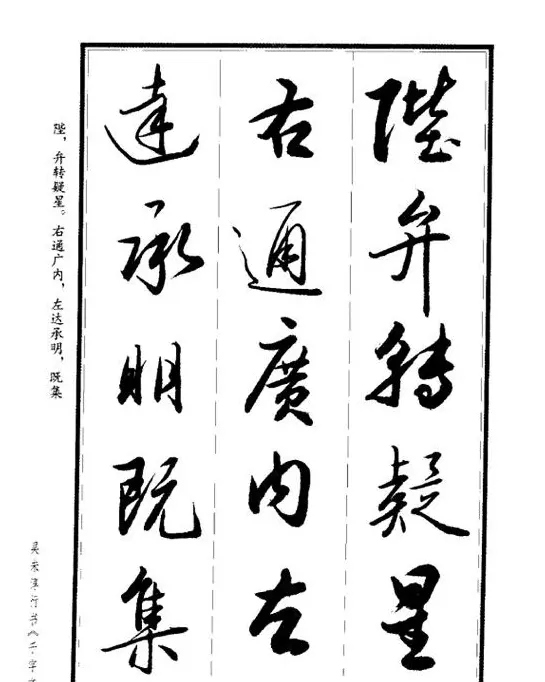 陛弁轉疑星
右通廣内左
達承明既集
陛，弁转疑星。右通广内，左达承明，既集
行书《千字